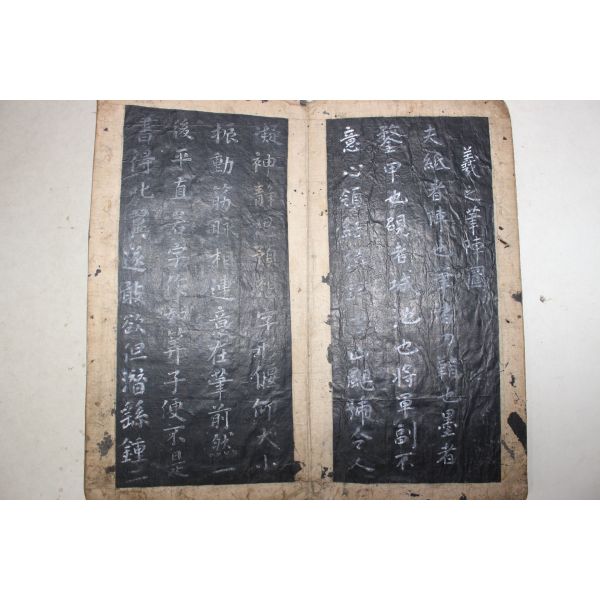 羲之筆陣圖
夫紙者陣也筆者刀鞘也墨者
鍪甲也硯者城池也將軍副不
意心領 山颭 令人
凝神靜思預想字形偃仰大小
振動筋脈相連意在筆前然
後平直若字作如筭子便不是
書得此翼遂敢欲但潛 鍾二